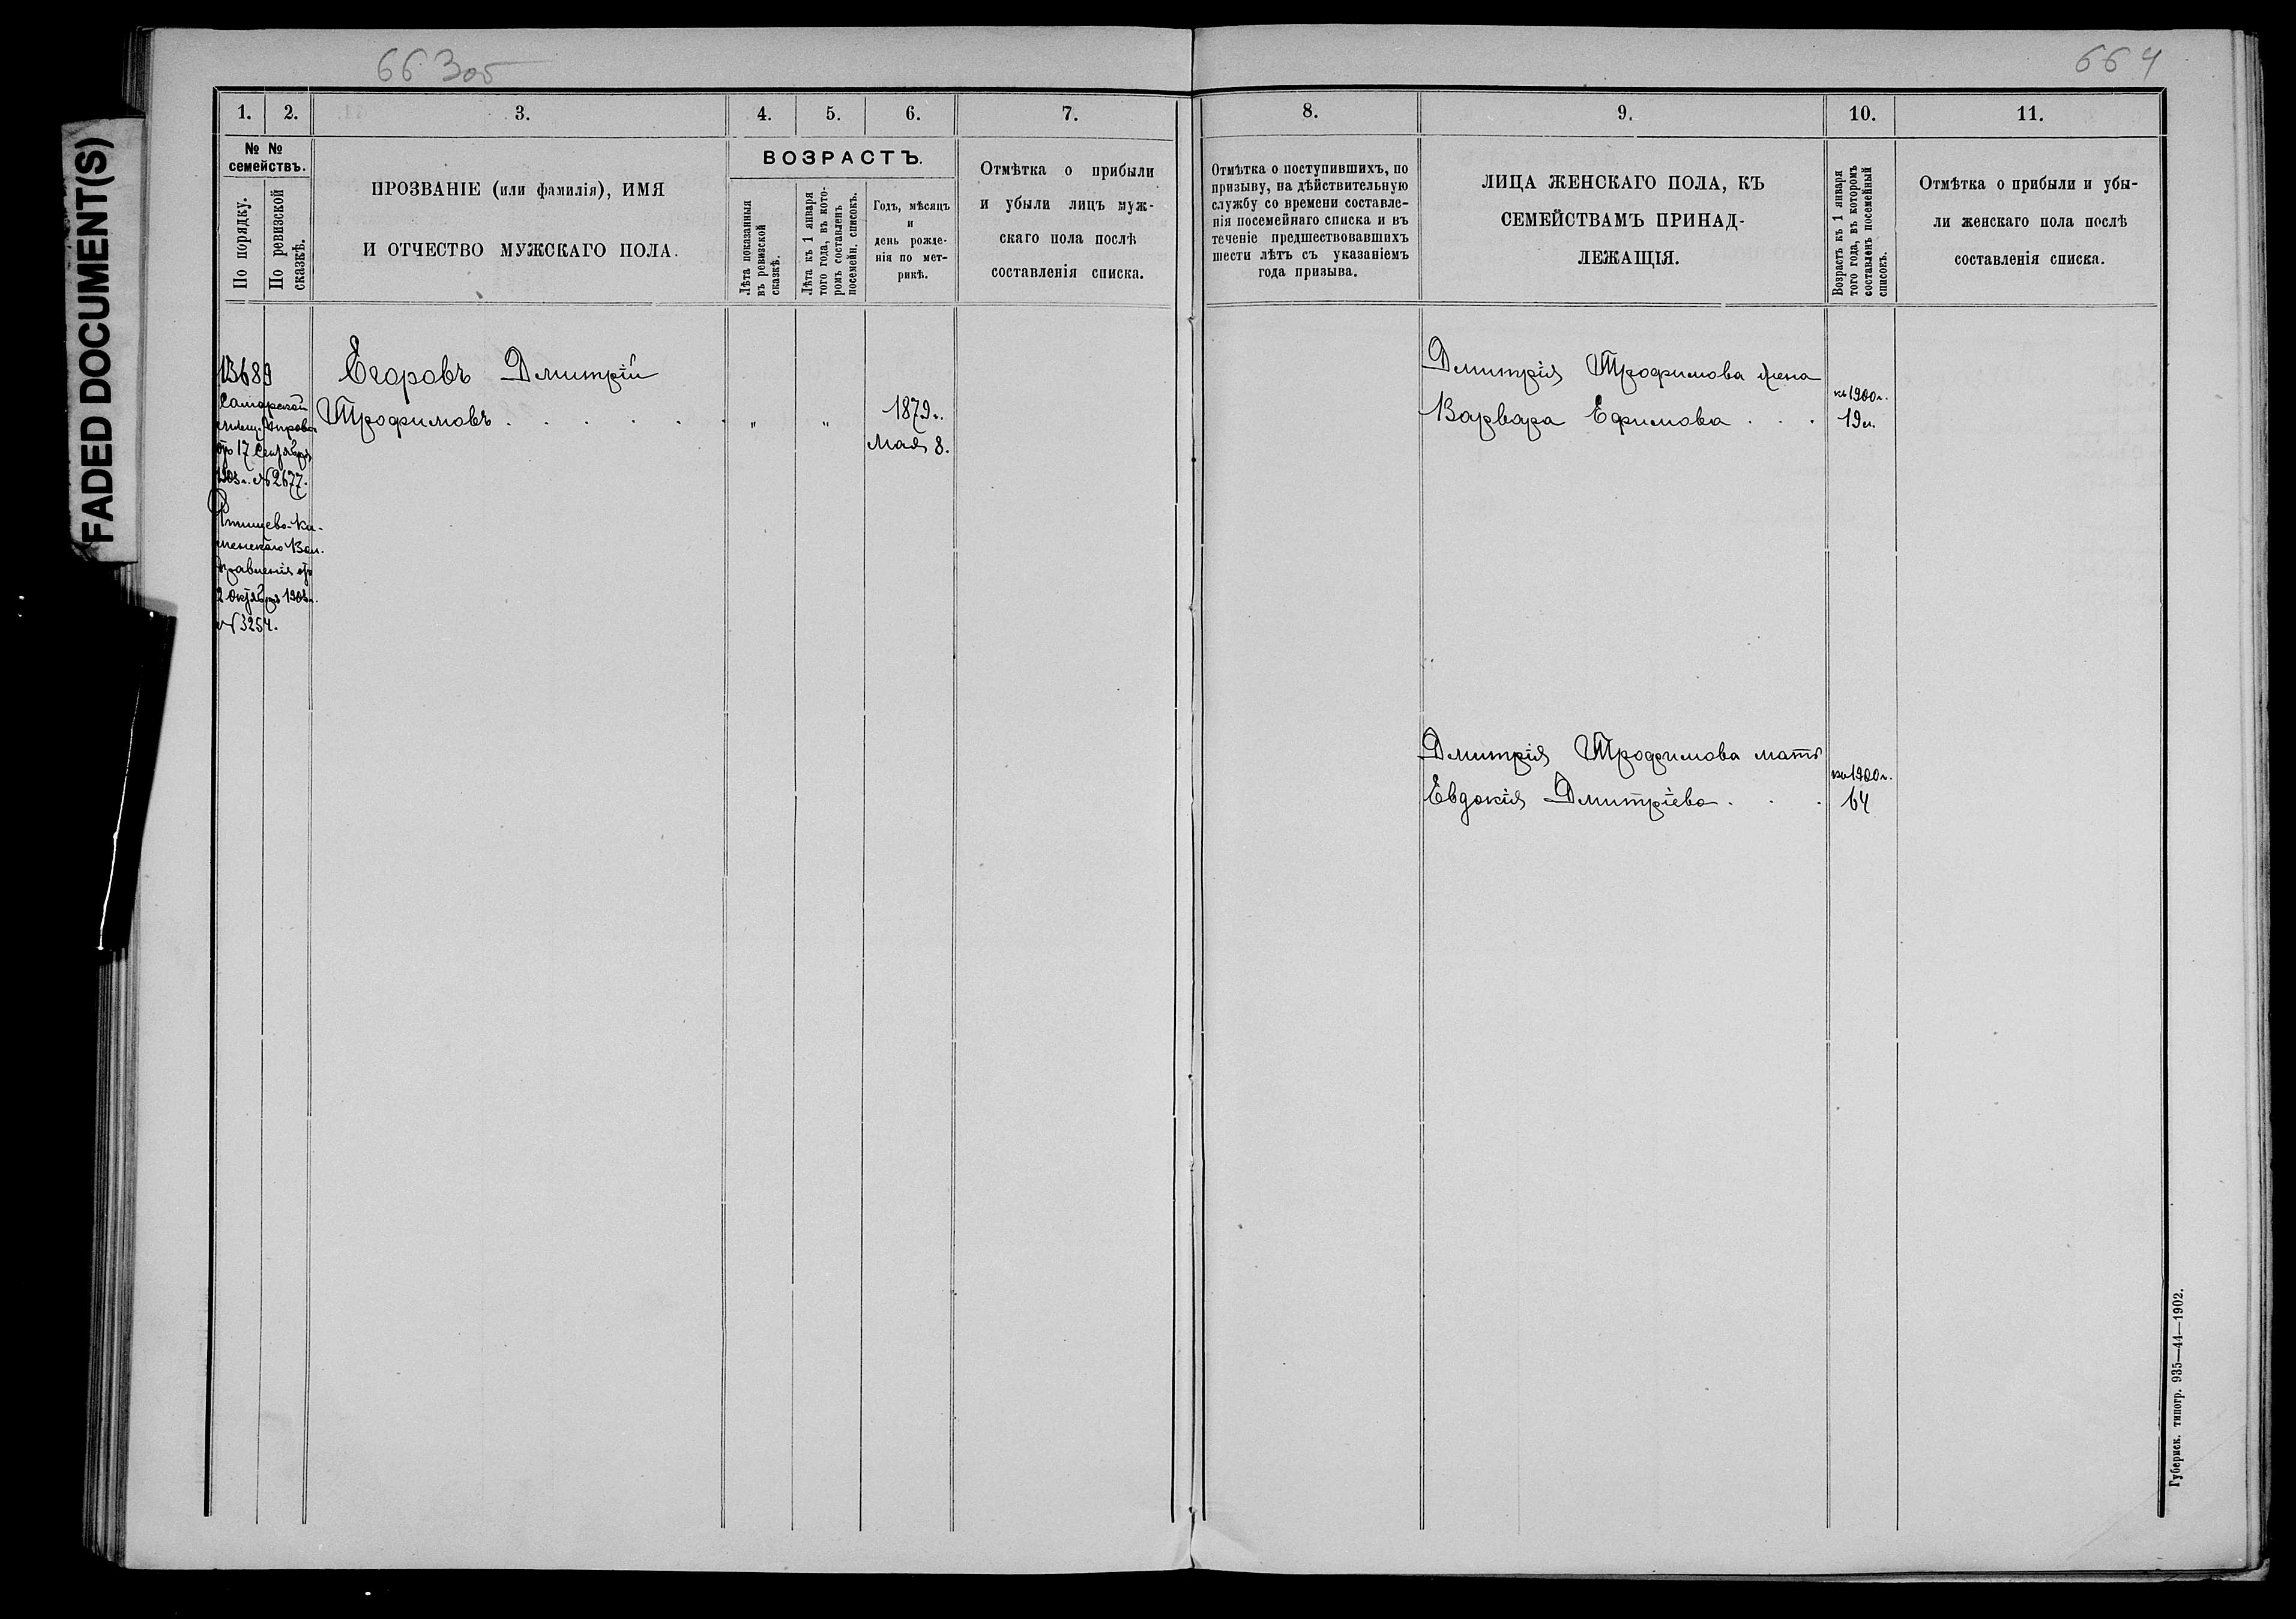 66 об
664
FADED DOCUMENT(S)
1.
2.
3.
4.
5.
6.
7.
8.
9.
10.
11.
№ №
семействъ.
По порядку.
По ревизской
сказкѣ.
ПРОЗВАНІЕ (или фамилія), ИМЯ
И ОТЧЕСТВО МУЖСКАГО ПОЛА.
ВОЗРАСТЪ.
Лѣта показанныя
въ ревизской
сказкѣ.
Лѣта къ 1 января
того года, въ кото-
ромъ составленъ
посемейн. списокъ.
Годъ, мѣсяцъ
и
день рожде-
нія по мет-
рикѣ.
Отмѣтка о прибыли
и убыли лицъ муж-
скаго пола послѣ
составленія списка.
Отмѣтка о поступившихъ, по
призыву, на дѣйствительную
службу со времени составле-
нія посемейнаго списка и въ
теченіе предшествовавшихъ
шести лѣтъ съ указаніемъ
года призыва.
ЛИЦА ЖЕНСКАГО ПОЛА, КЪ
СЕМЕЙСТВАМЪ ПРИНАД-
ЛЕЖАЩІЯ.
Возрастъ къ 1 января
того года, въ которомъ
составленъ посемейный
списокъ.
Отмѣтка о прибыли и убы-
ли женскаго пола послѣ
составленія списка.
13689
Самарской
мѣщ. Управы
отъ 17 Сентября
1903 г. № 2677.
Ртищево-Ка-
менскаго Вол.
Правленія отъ
2 Октября 1903 г.
№ 3254.
Егоровъ Дмитрій
Трофимовъ . . . . . .
"
"
1879 г.
Мая 8.
Дмитрія Трофимова жена
Варвара Ефимова . . .
къ 1900 г.
19 л.
Дмитрія Трофимова мать
Евдокія Дмитріева . . .
къ 1900 г.
64
Губернск. типогр. 935—44—1902.